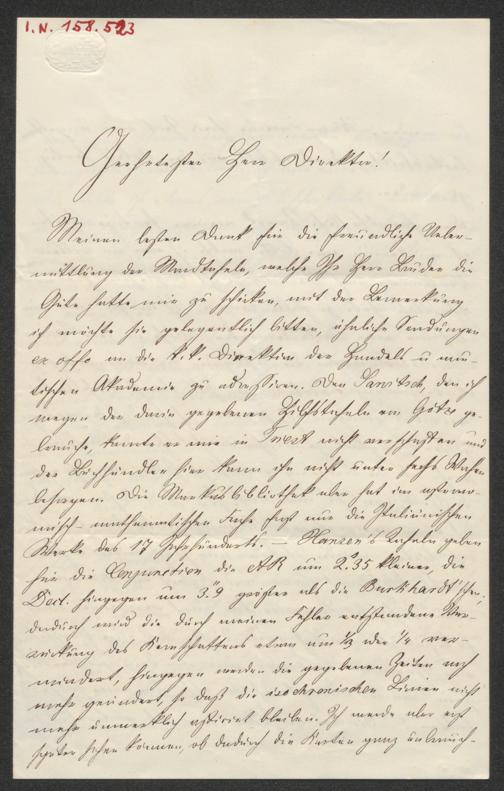 I. N. 158.523
Geehrtester Herr Direktor!
Meinen besten Dank für die freundliche Ueber-
mittlung der Mondtafeln, welche Ihr Herr Bruder die
Güte hatte mir zu schicken, mit der Bemerkung
ich möchte Sie gelegentlich bitten, ähnliche Sendungen
ex offo an die k. k. Direktion der Handels u nau-
tischen Akademie zu adressiren. Den, den ich
wegen der darin gegebenen Hilfstafeln am ge-
brauche, konnte er mir in Triest nicht verschaffen und
der Buchhändler hier kann ihn nicht unter sechs Wochen
besorgen. Die Markusbibliothek aber hat im astrono-
misch-mathematischen Fache fast nur die Italienischen
Werke des 17 Jahrhunderts. — Hansen's Tafeln geben
für die Conjunction die AR um 2."35 kleiner, die
Decl. hingegen um 3."9 größer als die Burkhardt'schen,
dadurch wird die durch meinen Fehler entstandene Ver-
rückung des Kernschattens etwa um 1/3 oder 1/4 ver-
mindert, hingegen werden die gegebenen Zeiten noch
mehr geändert, so daß die isochronischen Linien nicht
mehr unmerklich afficirt bleiben. Ich werde aber erst
später sehen können, ob dadurch die Karten ganz unbrauch-